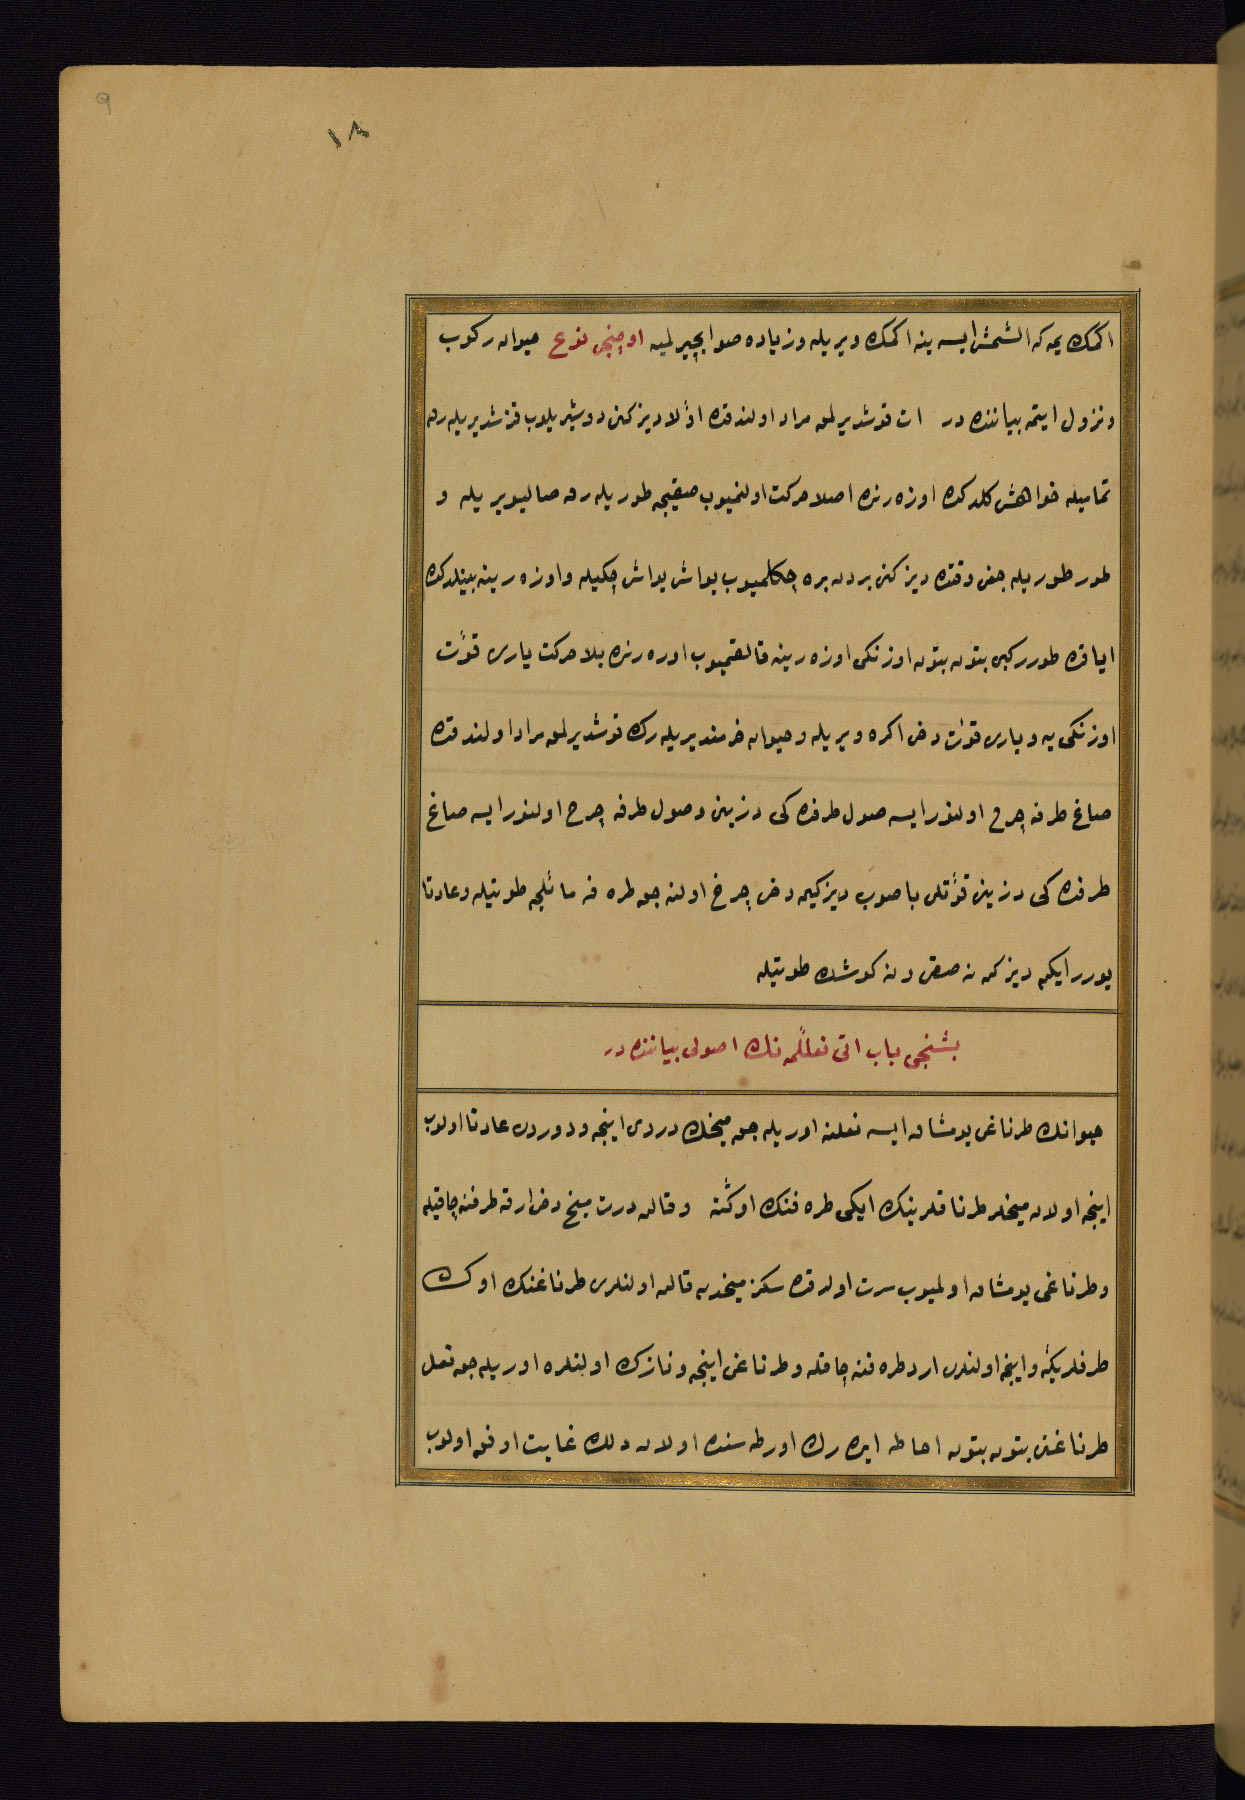 9
١٨
اكمك يمه كه الشمش ايسه ينه اكمك ويريله وزياده صو ايچيرلميه اوچنجى نوع حيوانه ركوب
ونزول ايتمه بياننده در ات قوشديرلمه مراد اولندقده اوّلا ديزكين دوشيريلوب قزشديريله رق
تماميله خواهش كلدكده اوزه رنده اصلا حركت اولنميوب صيقيجه طوريله رق صاليويريله و
طور طوريله جق وقتده ديزكين بردن بره چكلميوب يواش يواش چكيله واوزه رينه بينلدكده
اياقده طوررکبى بتون بتون اوزنكى اوزه رينه قالقميوب اوزه رنده بلا حركت يارى قوّت
اوزنكى يه ويارى قوّت دخى اكره ويريله وحيوان خرمنديريله رك قوشديرلمه مراد اولندقده
صاغ طرفه چرخ اولنور ايسه صول طرفده كى دزينى وصول طرفه چرخ اولنور ايسه صاغ
طرفده كى دزينى قوّتلى باصوب ديزكينى دخى چرخ اولنه جق طرفه مائلجه طوتيله وعادتا
يورر ايكن ديزكين نه صقى ونه كوشك طوتيله
بشنجى باب اتى نعللمه نك اصولى بياننده در
حيوانك طرناغى يومشاق ايسه نعلنه اوريله جق ميخك دردى اينجه ودوردى عادتا اولوب
اينجه اولان ميخلر طرناقلرينك ايكى طرفنك اوكنه وقالن درت ميخ دخى ارقه طرفنه چاقيله
وطرناغى يومشاق اولميوب سرت اولدقده سكز ميخدن قالن اولنلرى طرناغنك اوك
طرفلرينه واينجه اولنلرى ارد طرفنه چاقله وطرناغى اينجه ونازك اولنلره اوريله جق نعل
طرناغنى بتون بتون احاطه ايده رك اورطه سنده اولان دلك غايت اوفق اولوب